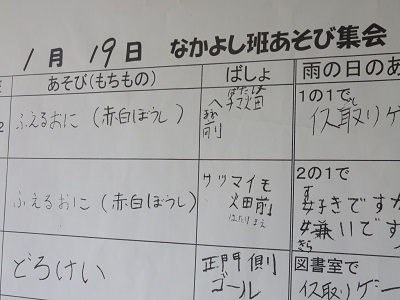 1月19日 なかよし班あそび集会
あそび(もちもの) ばしょ 雨の日のあ
2
ふえるおに(赤白ぼうし)
ヘチマ畑
はたけ
まえ
前
1の1で
イス取りゲ
ふえるおに(赤白ぼうし)
サツマイモ
畑前
はたけまえ
2の1で
す
好きですか
嫌いです
きら
どろけい
正門側
ゴール
図書室で
イス取りゲー